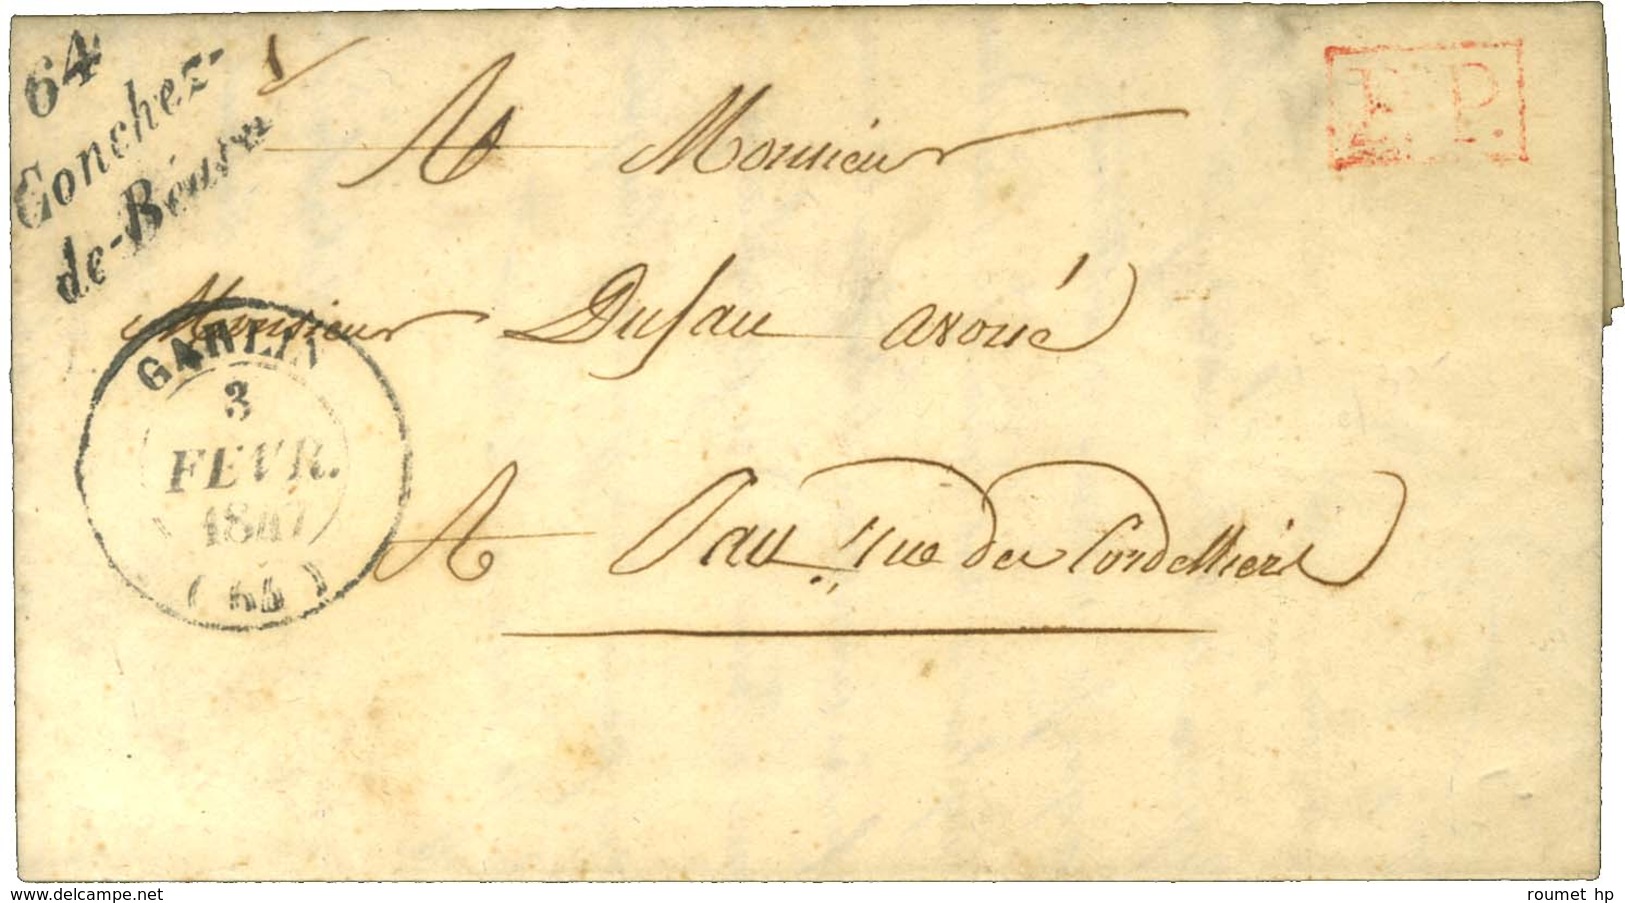 64
Conchez-
de-Béarn
P.P.
A Monsieur
Monsieur Dufau avoué
GARLIN
3
FEVR.
1847
(64)
A Pau, rue des Cordelliers
www.delcampe.net
roumet hp